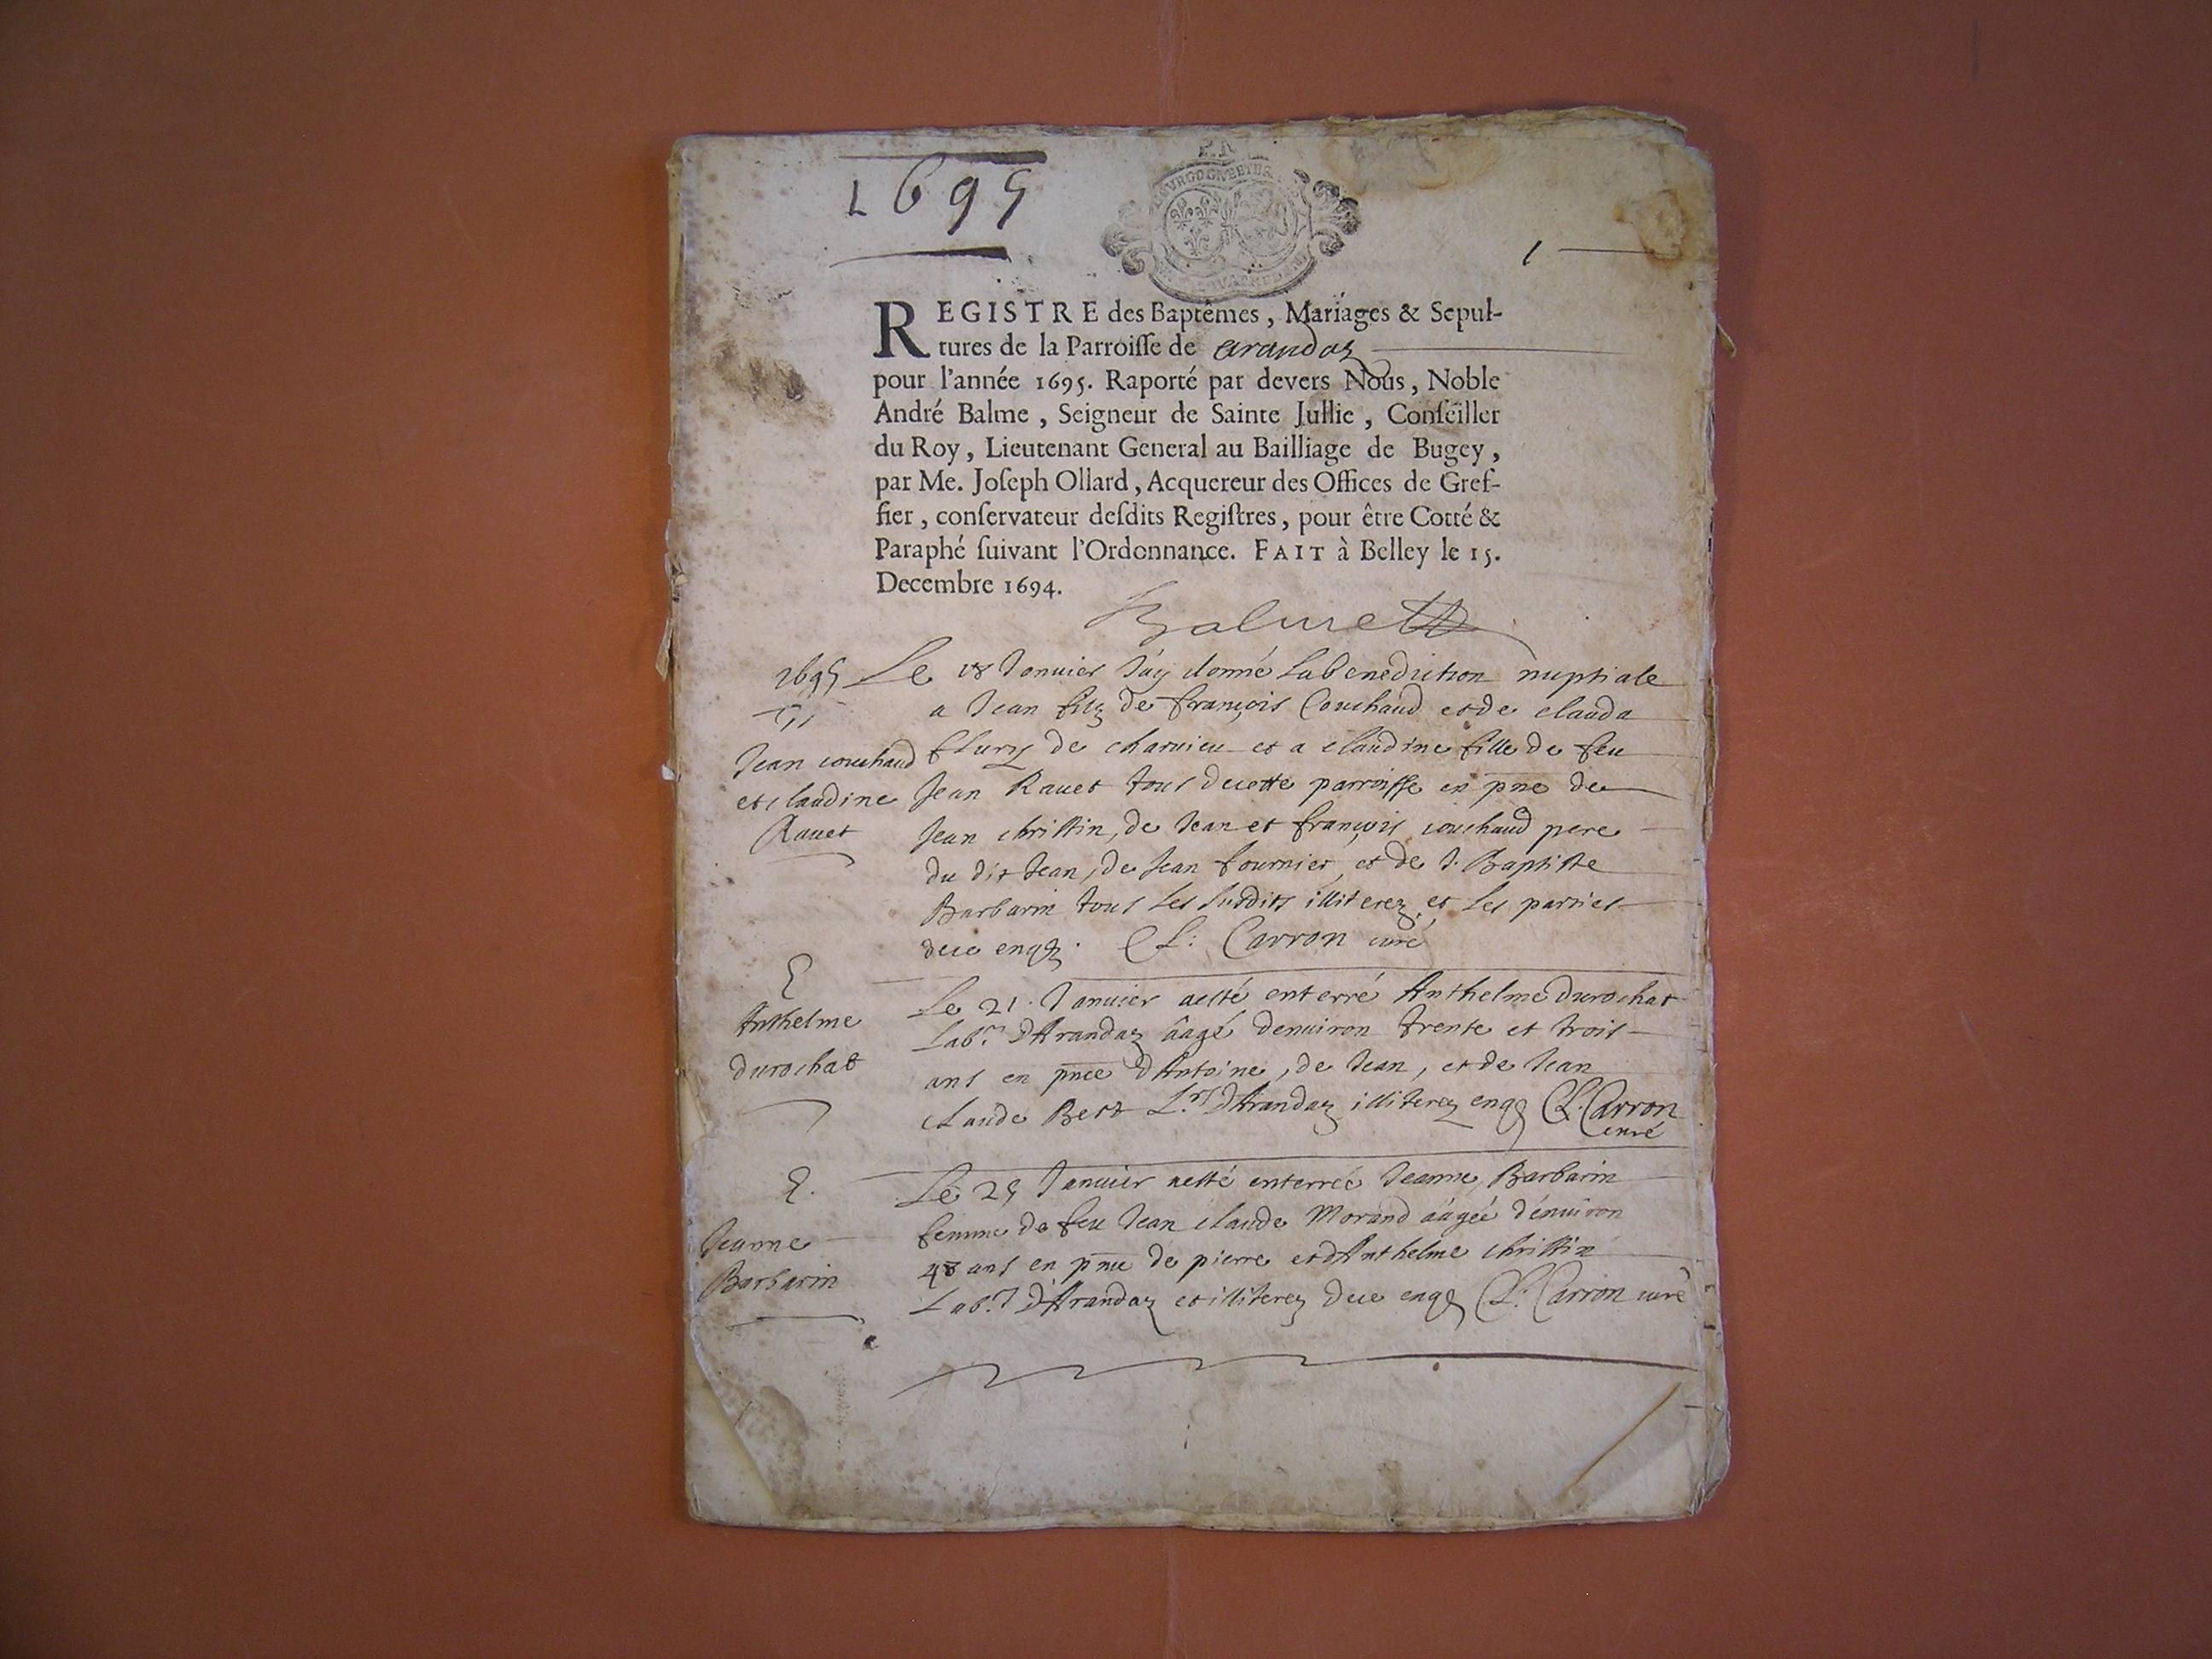 1695
BOVRGOGNE
1
REGISTRE des Baptêmes, Mariages & Sepul-
tures de la Parroisse de Arandaz
pour l'année 1695. Raporté par devers Nous, Noble
André Balme, Seigneur de Sainte Jullie, Conseiller
du Roy, Lieutenant General au Bailliage de Bugey,
par Me. Joseph Ollard, Acquereur des Offices de Gref-
fier, conservateur desdits Registres, pour être Cotté &
Paraphé suivant l'Ordonnance. FAIT à Belley le 15.
Decembre 1694.
Balme
1695
Jean couchaud
et claudine
Ravet
Le 18 Janvier J'ay donné la benediction nuptiale
a Jean filz de françois Couchaud et de clauda
flury de charvieu et a claudine fille de feu
Jean Ravet tous de cette parroisse en pñce de
Jean christin, de Jean et françois couchaud pere
du dit Jean, de Jean fournier, et de J. Baptiste
Barbarin tous les susdits illiterez et les parties
de ce enqz. Cl: Carron curé
E
Anthelme
durochat
Le 21. Janvier a esté enterré Anthelme durochat
Labr. d'Arandaz âagé d'environ trente et trois
ans en pñce d'Antoine, de Jean, et de Jean
claude Bert Lrs d'Arandaz illiterez enqz Cl. Carron
curé
E.
Jeanne
Barbarin
Le 25 Janvier a esté enterrée Jeanne Barbarin
femme de feu Jean claude Morand âagée d'environ
48 ans en pñce de pierre et d'Anthelme christin
Labrs d'Arandaz et illiterez de ce enqz Cl. Carron curé